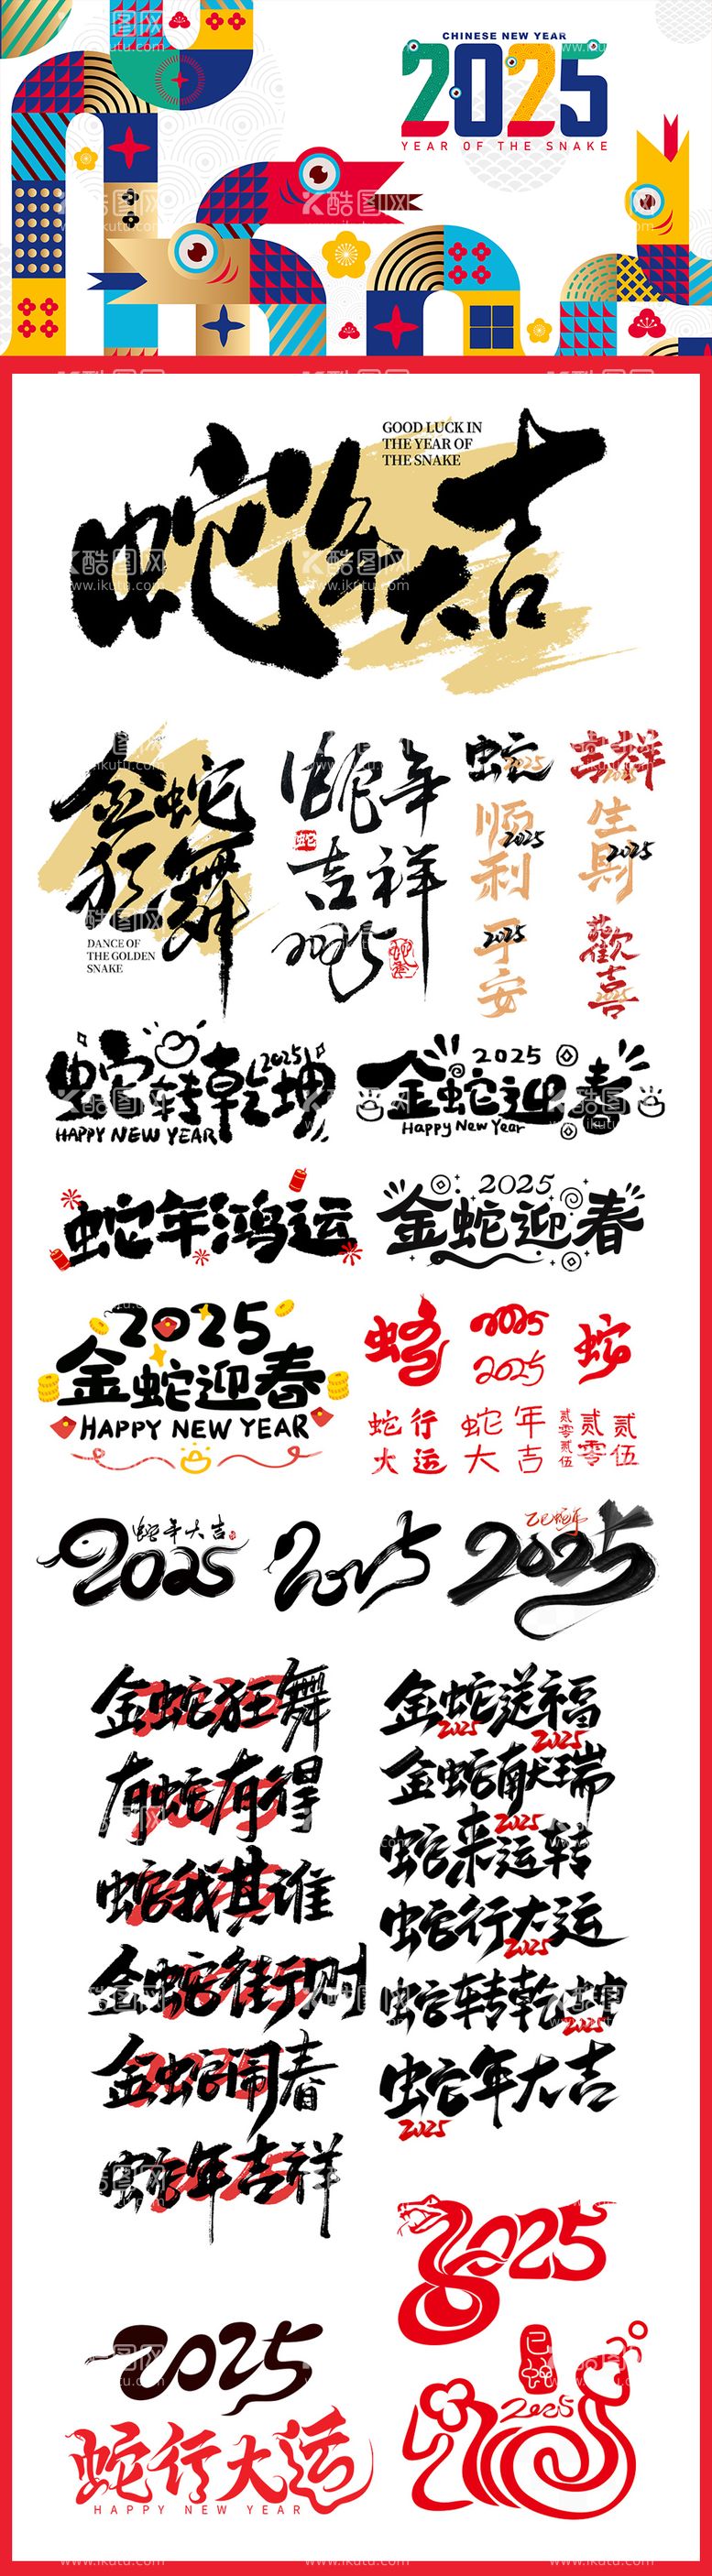 CHINESE NEW YEAR
2025
YEAR OF THE SNAKE
GOOD LUCK IN
THE YEAR OF
THE SNAKE
蛇年大吉
金蛇
狂舞
DANCE OF
THE GOLDEN
SNAKE
蛇年
吉祥
2025
蛇
2025
顺利
2025
平安
2025
吉祥
2025
生财
2025
欢喜
2025
蛇转乾坤
2025
HAPPY NEW YEAR
2025
金蛇迎春
Happy New Year
蛇年鸿运
2025
金蛇迎春
2025
金蛇迎春
HAPPY NEW YEAR
蛇
2025
2025
蛇
蛇行
大运
蛇年
大吉
贰零贰伍
贰零贰伍
蛇年大吉
2025
2025
乙巳蛇年
2025
金蛇狂舞
有蛇有得
蛇我其谁
金蛇衔财
金蛇闹春
蛇年吉祥
金蛇送福
2025
金蛇献瑞
2025
蛇来运转
2025
蛇行大运
2025
蛇转乾坤
2025
蛇年大吉
2025
2025
2025
蛇行大运
HAPPY NEW YEAR
2025
酷图网
www.ikutu.com